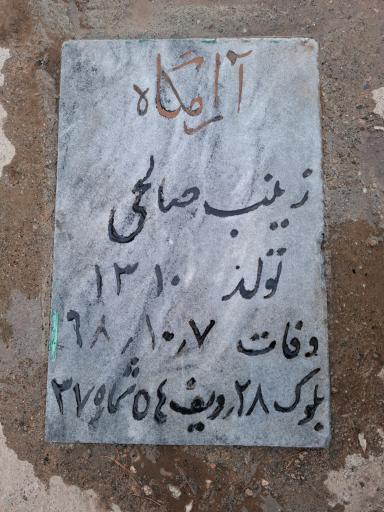 آرامگاه
زینب صالحی
تولد ۱۳۱۰
وفات ۹۸٫۱۰٫۷
بلوک ۲۸ ردیف ۵۴ شماره ۳۷